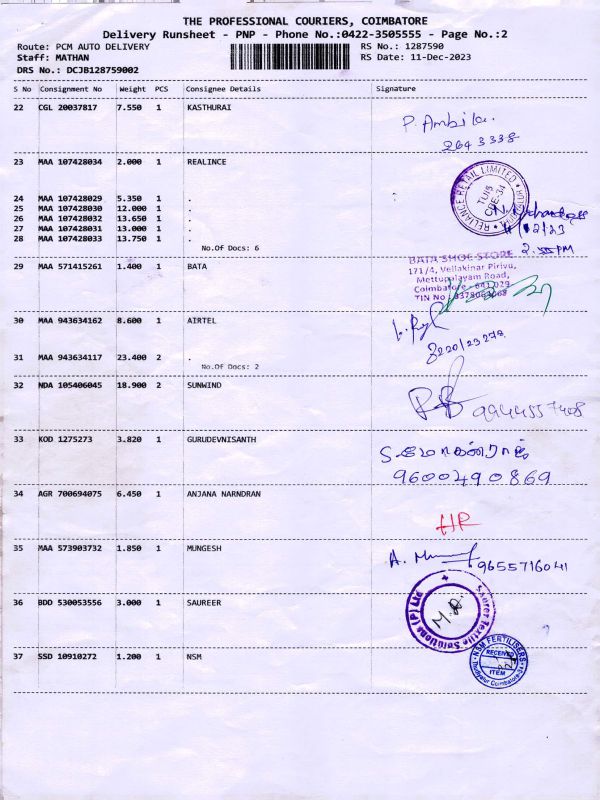 THE PROFESSIONAL COURIERS, COIMBATORE
Delivery Runsheet - PNP - Phone No.:0422-3505555 - Page No.:2
Route: PCM AUTO DELIVERY RS No.: 1287590
Staff: MATHAN RS Date: 11-Dec-2023
DRS No.: DCJB128759002
S No Consignment No Weight PCS Consignee Details Signature
22 CGL 20037817 7.550 1 KASTHURAI
P. Ambika
2643338
23 MAA 107428034 2.000 1 REALINCE
RELIANCE RETAIL LIMITED
24 MAA 107428029 5.350 1 .
25 MAA 107428030 12.000 1 .
26 MAA 107428032 13.650 1 .
27 MAA 107428031 13.000 1 .
28 MAA 107428033 13.750 1 .
No.Of Docs: 6
29 MAA 571415261 1.400 1 BATA
BATA SHOE STORE
171/4, Vellakinar Pirivu,
Mettupalayam Road,
Coimbatore - 641 029
TIN No
30 MAA 943634162 8.600 1 AIRTEL
31 MAA 943634117 23.400 2 .
No.Of Docs: 2
32 NDA 105406045 18.900 2 SUNWIND
9944557408
33 KOD 1275273 3.820 1 GURUDEVNISANTH
9600490869
34 AGR 700694075 6.450 1 ANJANA NARNDRAN
HR
35 MAA 573903732 1.850 1 MUNGESH
9655716041
36 BDD 530053556 3.000 1 SAUREER
Saurer Textile Solutions (P) Ltd
37 SSD 10910272 1.200 1 NSM
NSM FERTILISERS
RECEIVED
ITEM